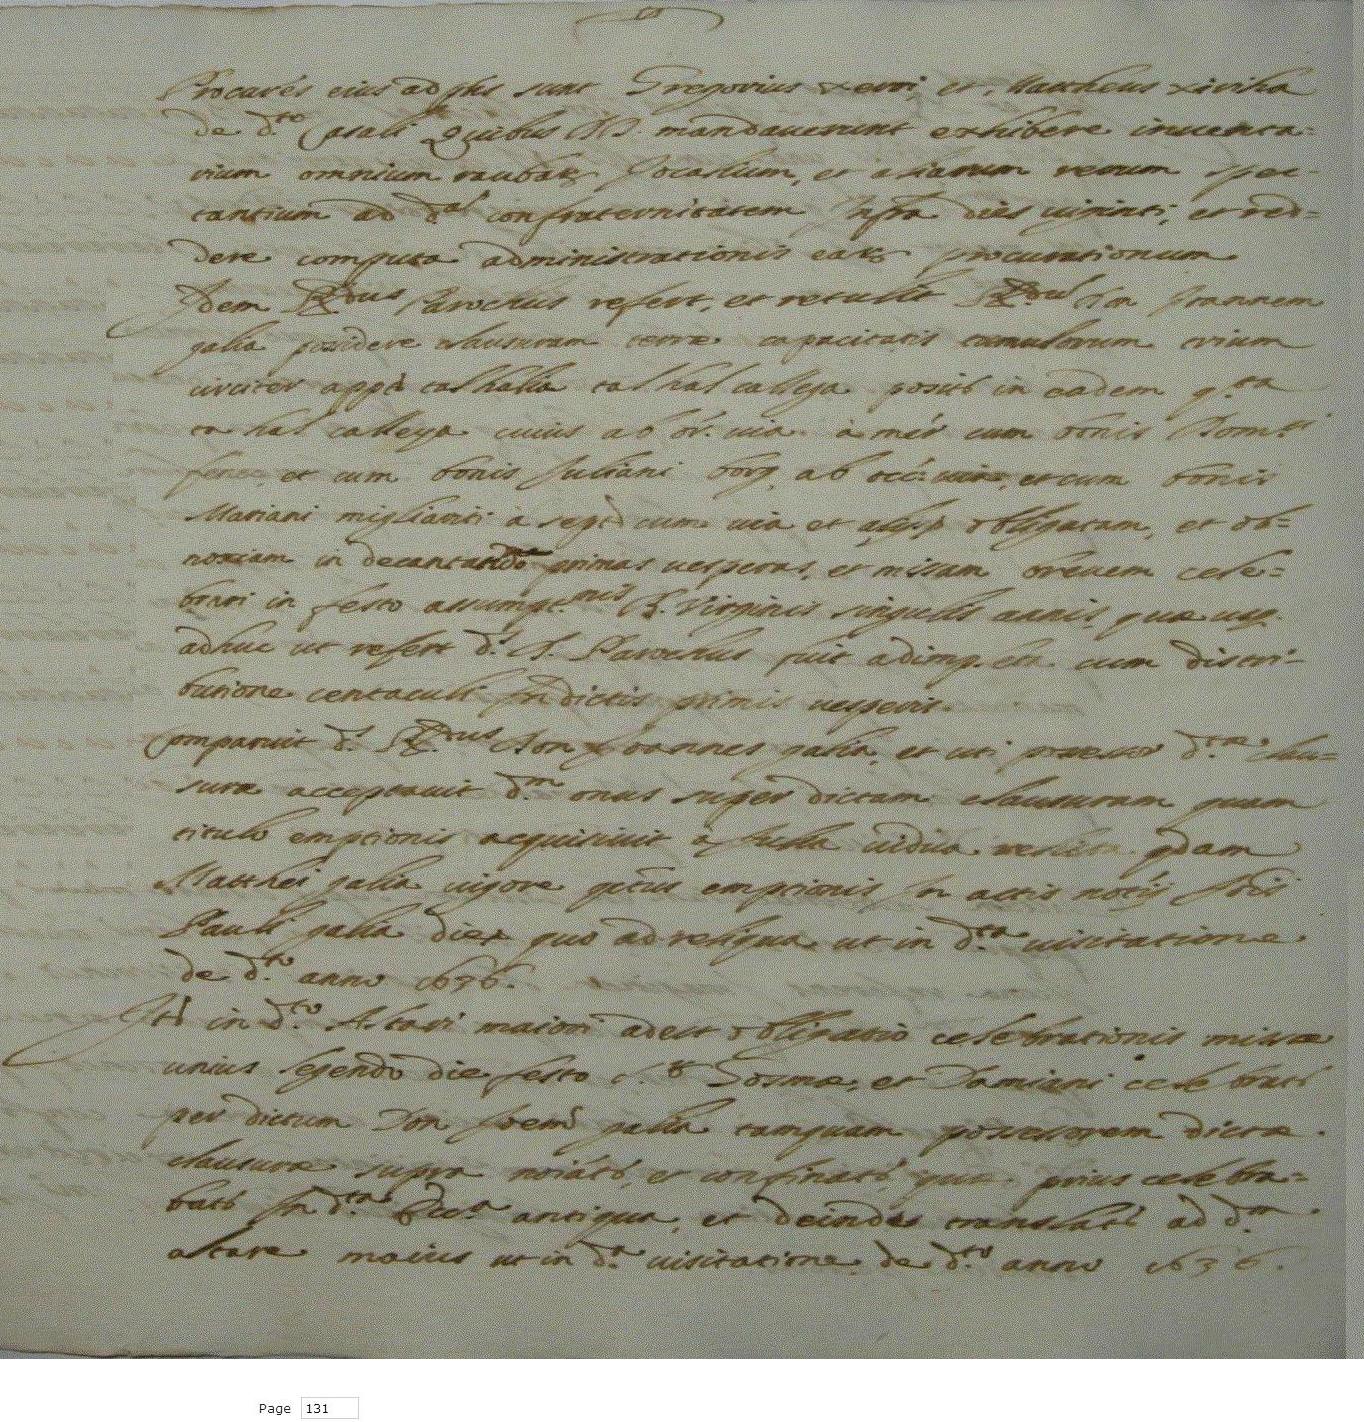 Procures eius ad phs sunt Gregorius xerri, et Mattheus xiriha
de d.to Casali Quibus Ill. mandaverunt exhibere inventa=
rium omnium raubar. Jocalium, et aliarum rerum spec-
tantium ad d.al confraternitatem infra dies viginti, et red=
dere computa administrationis ear. procurationum
Idem R.dus Parochus refert, et retulit R.dus Don Joannem
galia possidere clausuram terræ capacitatis tumulorum trium
circiter app. tal halia tal hal calleja posit in eadem
ta hal calleja cuius ab or. via à mer. cum bonis
et cum bonis Juliani borg, ab occ. et cum bonis
Mariani migliariti à sept. cum via et obligatam, et ob=
noxiam in decantando primas vesperas, et missam brevem cele=
brari in festo assumpt.nis B. Virginis singulis annis, quæ usq.
adhuc ut refert d. R. Parochus fuit adimpleta cum distri-
butione in dictis primis vesperis.
Comparuit d. R.dus Don Joannes galia, et uti d.tæ clau=
suræ acceptavit d.m onus super dictam clausuram quam
titulo emptionis acquisivit à vidua relicta qdam
Matthei galia vigore emptionis in actis not.
Pauli galia die quo ad reliqua ut in d.ta visitatione
de d.to anno 1636.
It. in d.to Altari maiori adest obligatio celebrationis missæ
unius legendo die festo S.ti Cosmæ, et Damiani celebrari
per dictum Don Joem galia tamquam possessorem dictæ
clausuræ supra noiat. et confinat. quæ prius celebra=
bat. in d.ta Eccl.a antiqua, et deindes translat. ad d.m
altare maius ut in d.a visitatione de d.to anno 1636.
Page 131